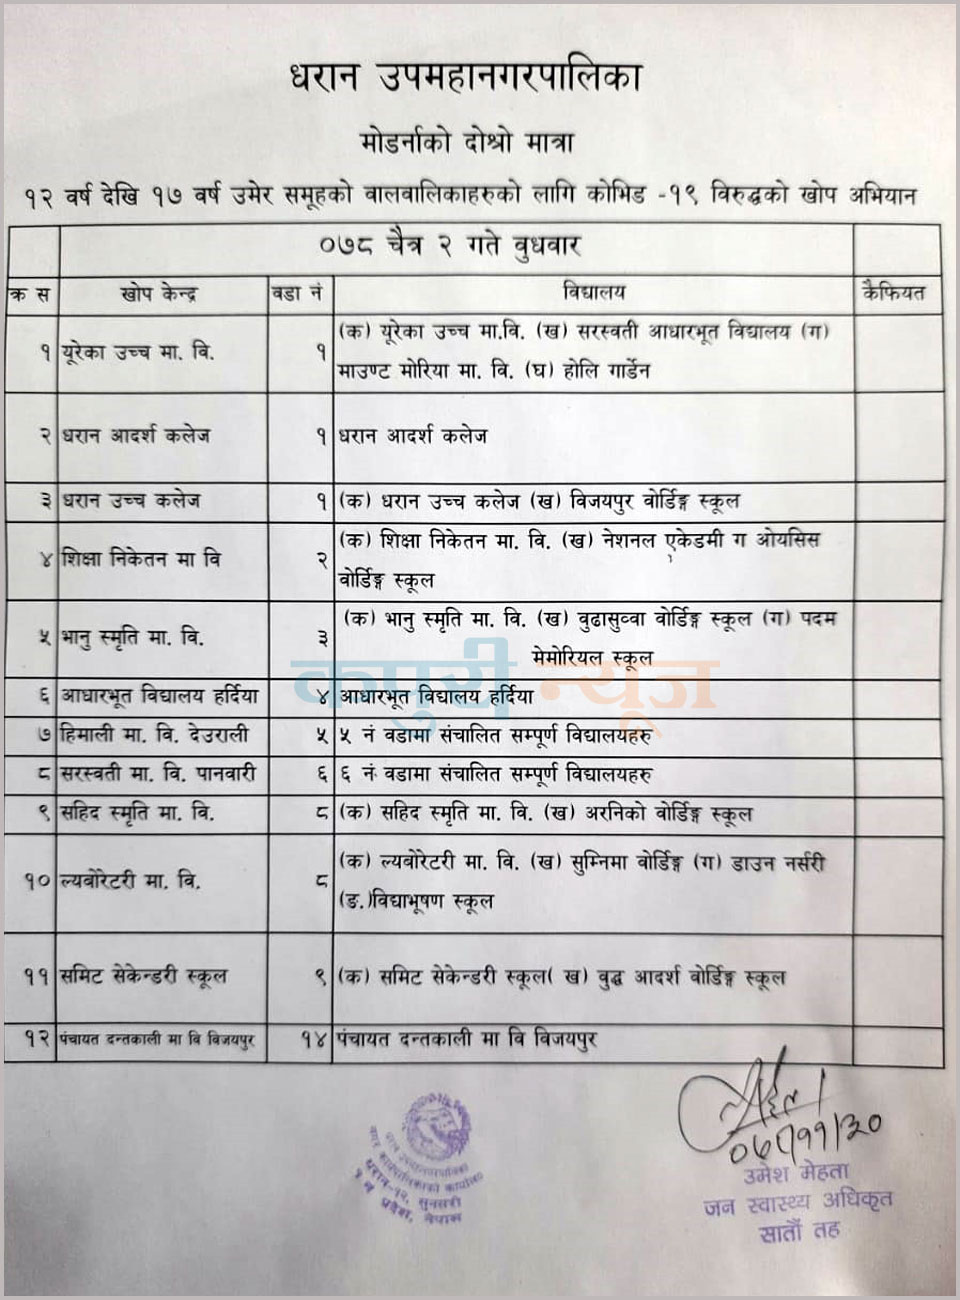 धरान उपमहानगरपालिका
मोडर्नाको दोश्रो मात्रा
१२ वर्ष देखि १७ वर्ष उमेर समूहको वालवालिकाहरुको लागि कोभिड -१९ विरुद्धको खोप अभियान
०७८ चैत्र २ गते वुधवार
क्र स खोप केन्द्र वडा नं विद्यालय कैफियत
१ यूरेका उच्च मा. वि. १ (क) यूरेका उच्च मा.वि. (ख) सरस्वती आधारभूत विद्यालय (ग)
माउण्ट मोरिया मा. वि. (घ) होलि गार्डेन
२ धरान आदर्श कलेज १ धरान आदर्श कलेज
३ धरान उच्च कलेज १ (क) धरान उच्च कलेज (ख) विजयपुर वोर्डिङ्ग स्कूल
४ शिक्षा निकेतन मा वि २ (क) शिक्षा निकेतन मा. वि. (ख) नेशनल एकेडमी ग ओयसिस
वोर्डिङ्ग स्कूल
५ भानु स्मृति मा. वि. ३ (क) भानु स्मृति मा. वि. (ख) वुढासुव्वा वोर्डिङ्ग स्कूल (ग) पदम
मेमोरियल स्कूल
कपुरी न्यूज
६ आधारभूत विद्यालय हर्दिया ४ आधारभूत विद्यालय हर्दिया
७ हिमाली मा. वि. देउराली ५ ५ नं वडामा संचालित सम्पूर्ण विद्यालयहरु
८ सरस्वती मा. वि. पानवारी ६ ६ नं वडामा संचालित सम्पूर्ण विद्यालयहरु
९ सहिद स्मृति मा. वि. ८ (क) सहिद स्मृति मा. वि. (ख) अरनिको वोर्डिङ्ग स्कूल
१० ल्यवोरेटरी मा. वि. ८ (क) ल्यवोरेटरी मा. वि. (ख) सुम्निमा वोर्डिङ्ग (ग) डाउन नर्सरी
(ङ.)विद्याभूषण स्कूल
११ समिट सेकेन्डरी स्कूल ९ (क) समिट सेकेन्डरी स्कूल( ख) वुद्ध आदर्श वोर्डिङ्ग स्कूल
१२ पंचायत दन्तकाली मा वि विजयपुर १४ पंचायत दन्तकाली मा वि विजयपुर
०७८/११/३०
उमेश मेहता
जन स्वास्थ्य अधिकृत
सातौँ तह
धरान उपमहानगरपालिका
नगर कार्यपालिकाको कार्यालय
धरान-१२, सुनसरी
१ नं प्रदेश, नेपाल